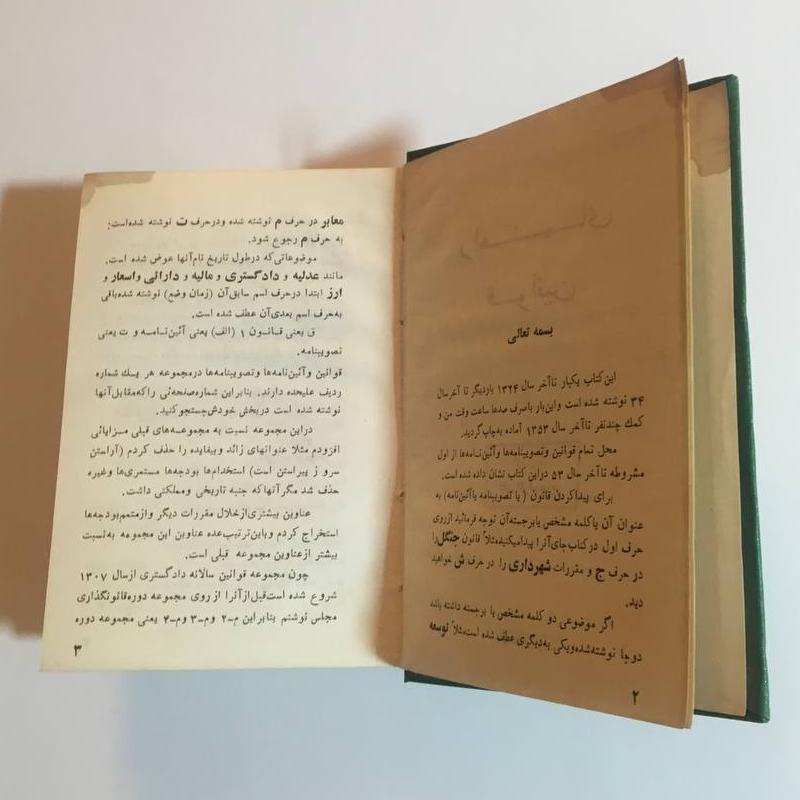 بسمه تعالی
این کتاب یکبار تا آخر سال ۱۳۲۴ باردیگر تا آخر سال
۳۴ نوشته شده است و این بار با صرف صدها ساعت وقت من و
کمک چند نفر تا آخر سال ۱۳۵۳ آماده به چاپ گردید.
محل تمام قوانین و تصویبنامه‌ها و آئین‌نامه‌ها از اول
مشروطه تا آخر سال ۵۳ در این کتاب نشان داده شده است.
برای پیدا کردن قانون ( یا تصویبنامه یا آئین‌نامه) به
عنوان آن یا کلمه مشخص یا برجسته آن توجه فرمائید از روی
حرف اول در کتاب جای آنرا پیدا میکنید مثلاً قانون جنگل را
در حرف ج و مقررات شهرداری را در حرف ش خواهید
دید.
اگر موضوعی دو کلمه مشخص یا برجسته داشته باشد
دو جا نوشته شده و یکی به دیگری عطف شده است مثلاً توسعه
۲
معابر در حرف م نوشته شده و در حرف ت نوشته شده است:
به حرف م رجوع شود.
موضوعاتی که در طول تاریخ نام آنها عوض شده است.
مانند عدلیه و دادگستری و مالیه و دارائی و اسعار و
ارز ابتدا در حرف اسم سابق آن (زمان وضع) نوشته شده باقی
به حرف اسم بعدی آن عطف شده است.
ق یعنی قانون ۱ (الف) یعنی آئین‌نامه و ت یعنی
تصویبنامه.
قوانین و آئین‌نامه‌ها و تصویبنامه‌ها در مجموعه هر یک شماره
ردیف علیحده دارند. بنابر این شماره صفحه‌ئی را که مقابل آنها
نوشته شده است در بخش خودش جستجو کنید.
در این مجموعه نسبت به مجموعه‌های قبلی مزایائی
افزودم مثلا عنوانهای زائد و بیفایده را حذف کردم (آراستن
سرو ز پیراستن است) استخدام‌ها بودجه‌ها مستمری‌ها وغیره
حذف شد مگر آنها که جنبه تاریخی و مملکتی داشت.
عناوین بیشتری از خلال مقررات دیگر و از متمم بودجه‌ها
استخراج کردم و باین ترتیب عده عناوین این مجموعه به نسبت
بیشتر از عناوین مجموعه قبلی است.
چون مجموعه قوانین سالانه دادگستری از سال ۱۳۰۷
شروع شده است قبل از آنرا از روی مجموعه دوره قانونگذاری
مجلس نوشتم بنابر این م-۲ وم-۳ وم-۴ یعنی مجموعه دوره
۳